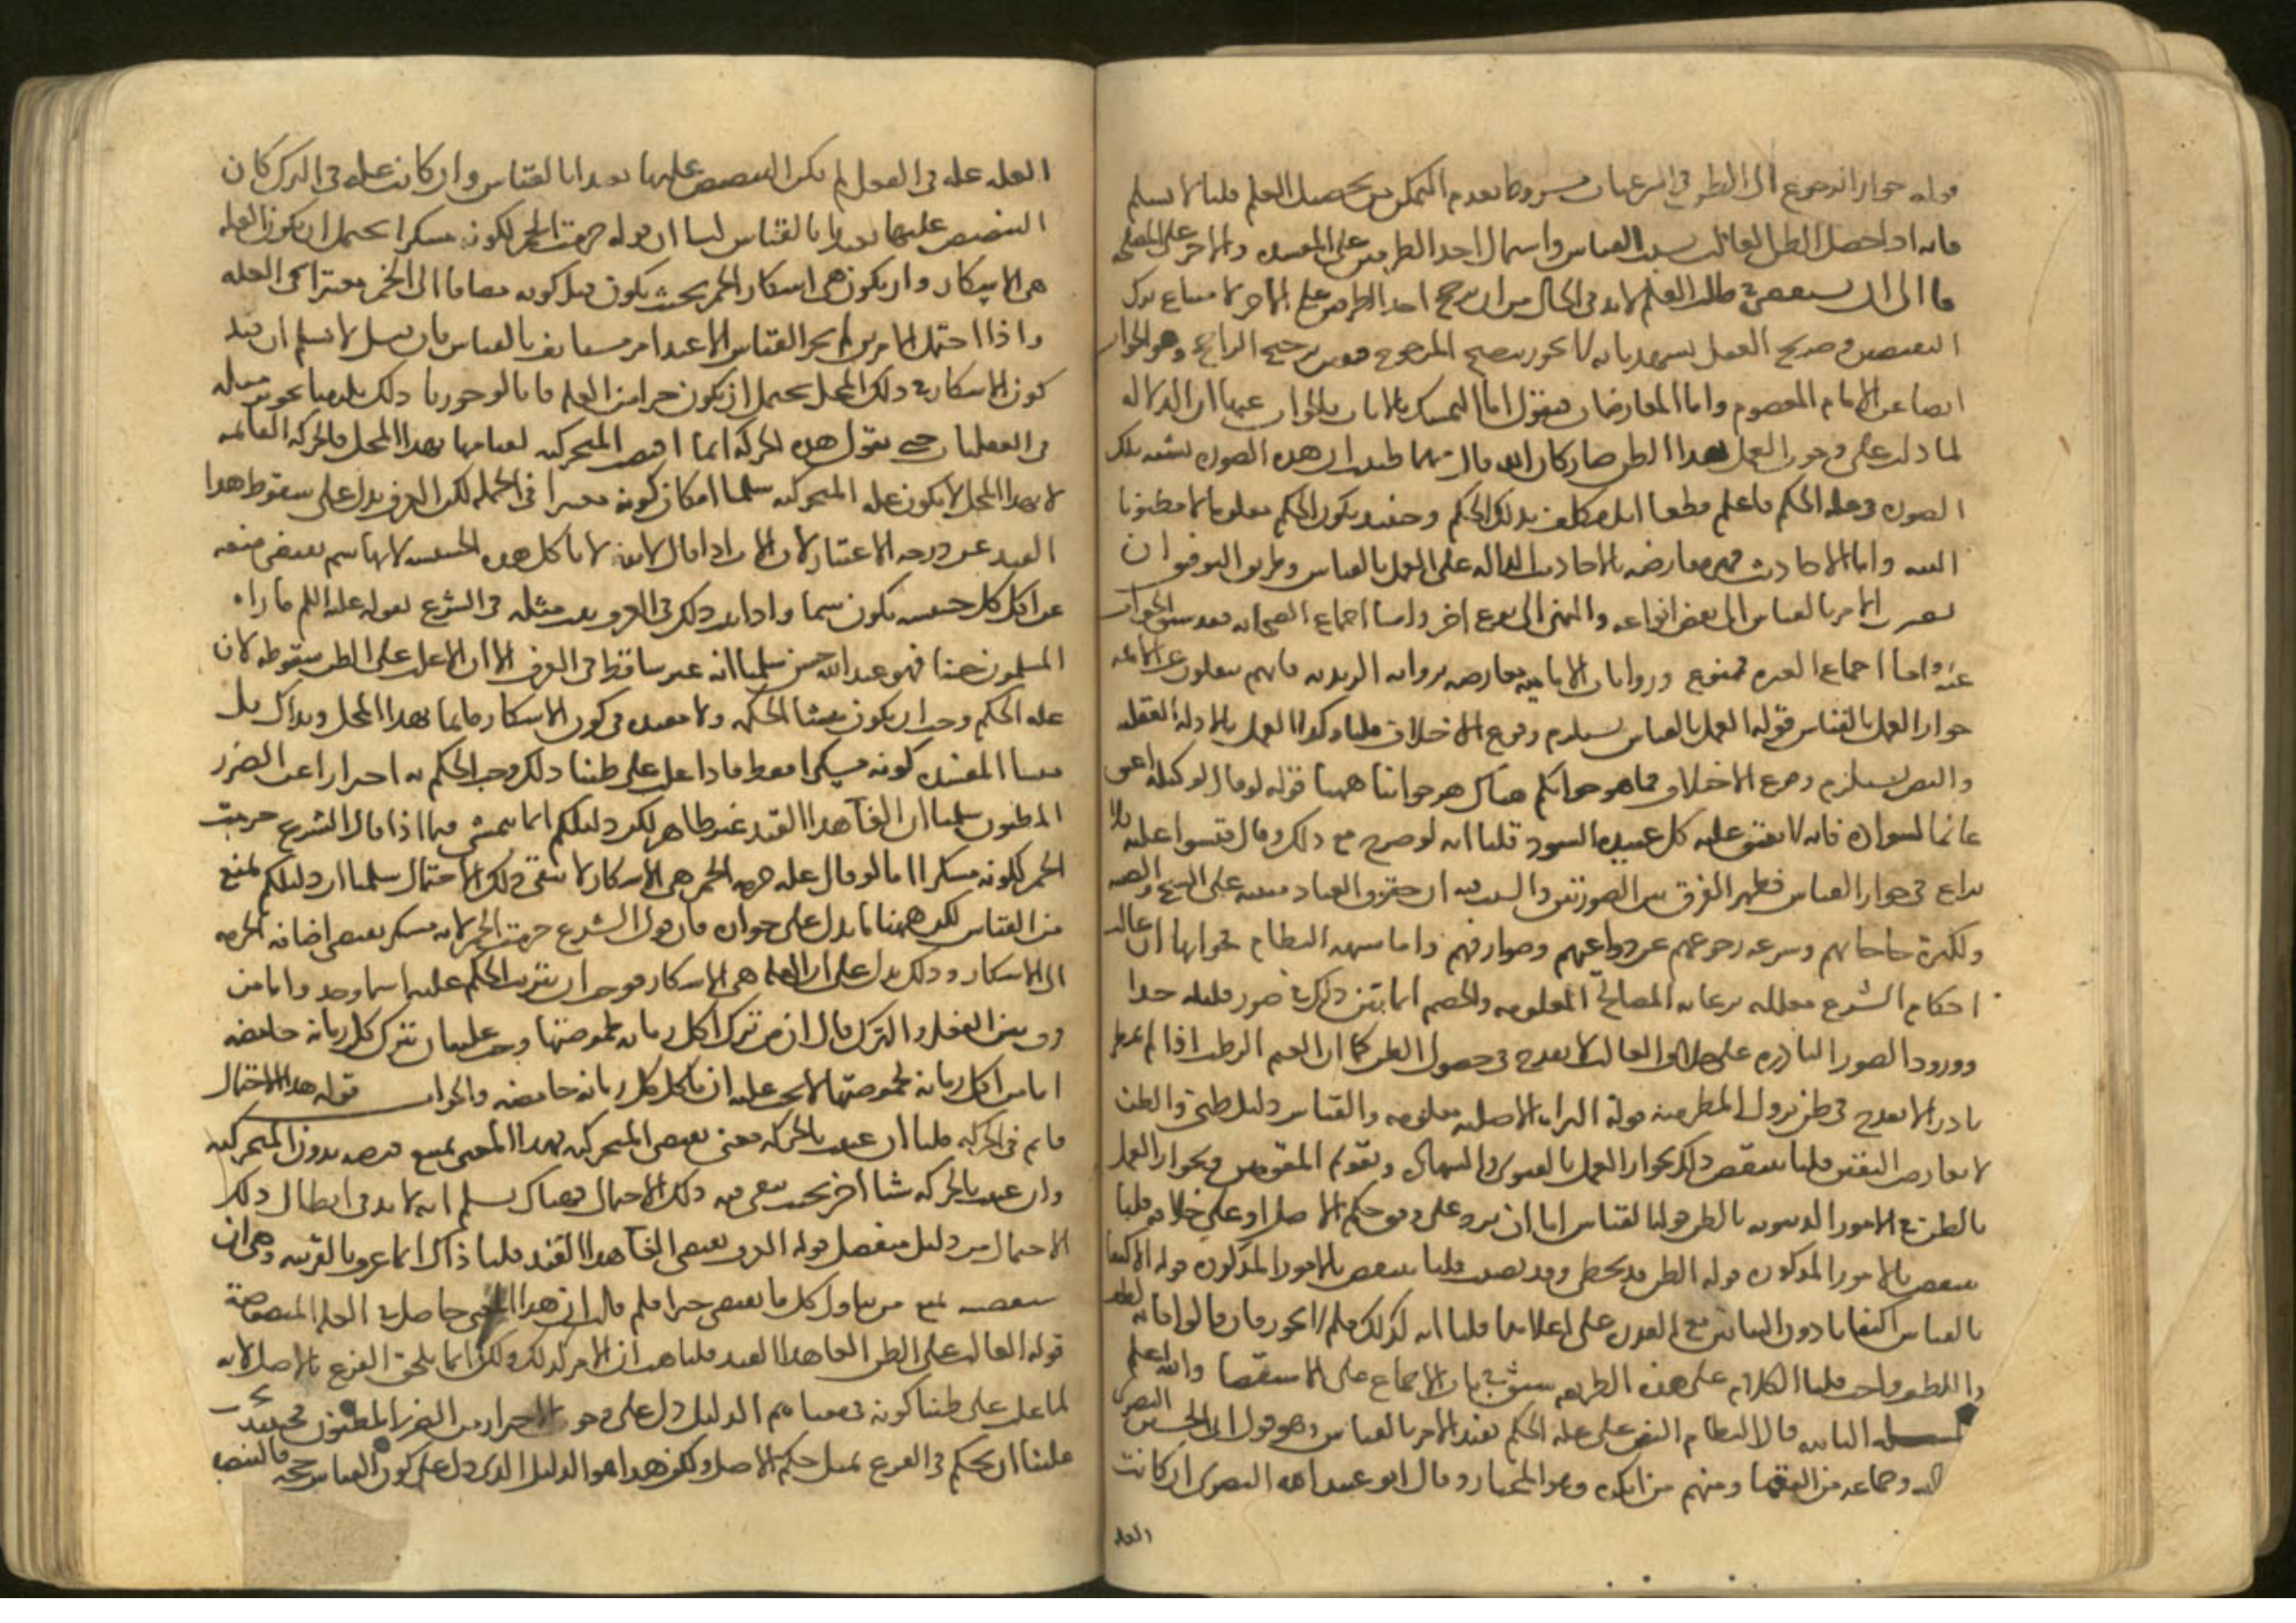 قوله جواز الرجوع الى الظن في الشرعيات مشروط بعدم التمكن من تحصيل العلم قلنا لا نسلم
فانه اذا حصل الظن الغالب بسبب القياس واشتمال احد الطرفين على المفسدة والاخر على المصلحة
فاما الى ان يستقصى في طلب العلم لا بد في الحال من ان يرجح احد الطرفين على الاخر لامتناع ترك
النقيضين وصريح العقل يشهد بانه لا يجوز ترجيح المرجوح فتعين ترجيح الراجح وهو الجواب
ايضا عن الامام المعصوم واما المعارضات فنقول اما التمسك بالايات فالجواب عنها ان الدلالة
لما دلت على وجوب العمل بهذا الظن صار كان الله قال مهما ظننت ان هذه الصورة تشبه تلك
الصورة في علة الحكم فاعلم قطعا انك مكلف بذلك الحكم وحينئذ يكون الحكم معلوما لا مظنونا
البتة واما الاحاديث فهي معارضة بالاحاديث الدالة على العمل بالقياس وطريق التوفيق ان
نصرف الامر بالقياس الى بعض انواعه والنهى الى نوع اخر واما اجماع الصحابة فقد سبق الجواب
عنه واما اجماع العترة فممنوع وروايات الامامية معارضة بروايات الزيدية فانهم ينقلون عن الائمة
جواز العمل بالقياس قوله العمل بالقياس يستلزم وقوع الاختلاف قلنا وكذا العمل بالادلة العقلية
والنص يستلزم وقوع الاختلاف فما هو جوابكم هناك هو جوابنا ههنا قوله لو قال لوكيله اعتق
غانما لسواده فانه لا يعتق عليه كل عبيده السود قلنا انه لو صرح مع ذلك وقال قيسوا عليه فلا
نزاع في جواز القياس فظهر الفرق بين الصورتين والسبب فيه ان حقوق العباد مبنية على الشح والضنة
ولكثرة حاجاتهم وسرعة رجوعهم عن دواعيهم وصوارفهم واما شبهة النظام فجوابها ان غالب
احكام الشرع معللة برعاية المصالح المعلومة والخصم انما بين ذلك في صور قليلة جدا
وورود الصور النادرة على خلاف الغالب لا يقدح في حصول الظن كما ان الغيم الرطب اذا لم يمطر
نادرا لا يقدح في ظن نزول المطر منه قوله البراءة الاصلية معلومة والقياس دليل ظني والظن
لا يعارض اليقين قلنا ينتقض ذلك بجواز العمل بالفتوى والشهادة وتقويم المقومين وبجواز العمل
بالظن في الامور الدنيوية بالظن قوله القياس اما ان يرد على وفق حكم الاصل او على خلافه قلنا
ينتقض بالامور المذكورة قوله الظن قد يخطئ وقد يصيب قلنا ينتقض بالامور المذكورة قوله الاكتفاء
بالقياس اكتفاء بادون البيانين مع القدرة على اعلاهما قلنا انه كذلك فلم لا يجوز فان قالوا فانه لطف
واللطف واجب قلنا الكلام على هذه الطريقة سبق في باب الاجماع على الاستقصاء والله اعلم
المسئلة الثانية قال النظام النص على علة الحكم يفيد الامر بالقياس وهو قول ابى الحسين البصرى
وجماعة من الفقهاء ومنهم من انكره وهو المختار وقال ابو عبد الله البصرى ان كانت
العلة
العلة علة في الفعل لم يكن التنصيص عليها تعبدا بالقياس وان كانت علة في الترك كان
التنصيص عليها تعبدا بالقياس لنا ان قوله حرمت الخمر لكونه مسكرا يحتمل ان يكون العلة
هي الاسكار وان يكون هي اسكار الخمر بحيث يكون قيد كونه مضافا الى الخمر معتبرا في العلة
واذا احتمل الامرين لم يجز القياس الا عند امر مستانف بالقياس فان قيل لا نسلم ان قيد
كون الاسكار في ذلك المحل يحتمل ان يكون جزءا من العلة فانا لو جوزنا ذلك يلزمنا تجويز مثله
في العقليات حتى نقول هذه الحركة انما اقتضت المتحركية لقيامها بهذا المحل فالحركة القائمة
لا بهذا المحل لا يكون علة المتحركية سلمنا امكان كونه معتبرا في الجملة لكن العرف يدل على سقوط هذا
القيد عن درجة الاعتبار لان الاب اذا قال لابنه لا تاكل هذه الحشيشة لانها سم يقتضى منعه
عن اكل كل حشيشة يكون سما واذا ثبت ذلك في العرف ثبت مثله في الشرع لقوله عليه السلم ما راه
المسلمون حسنا فهو عند الله حسن سلمنا انه غير ساقط في العرف الا ان الاغلب على الظن سقوطه لان
علة الحكم وجب ان يكون منشا الحكمة ولا مفسدة في كون الاسكار قائما بهذا المحل وبذاك بل
منشا المفسدة كونه مسكرا فقط فاذا غلب على ظننا ذلك وجب الحكم به احترازا عن الضرر
المظنون سلمنا ان الغآء هذا القيد غير ظاهر لكن دليلكم انما يتمشى فيما اذا قال الشرع حرمت
الخمر لكونه مسكرا اما لو قال علة حرمة الخمر هي الاسكار لا يبقى ذلك الاحتمال سلمنا ان دليلكم يمنع
من القياس لكن ههنا ما يدل على جوازه فان قول الشرع حرمت الخمر لانه مسكر يقتضى اضافة الحرمة
الى الاسكار وذلك يدل على ان العلة هي الاسكار فوجب ان يترتب الحكم عليه اينما وجد واما من
فرق بين الفعل والترك قال ان من ترك اكل رمانة لحموضتها وجب عليه ان يترك كل رمانة حامضة
اما من اكل رمانة لحموضتها لا يجب عليه ان ياكل كل رمانة حامضة والجواب قوله هذا الاحتمال
قائم في الحركة قلنا ان عنيت بالحركة معنى يقتضى المتحركية فهذا المعنى يمتنع فرضه بدون المتحركية
وان عنيت بالحركة شيئا اخر بحيث يبقى فيه ذلك الاحتمال فهناك نسلم انه لا بد في ابطال ذلك
الاحتمال من دليل منفصل قوله العرف يقتضى الغآء هذا القيد قلنا ذاك انما عرف بالقرينة وهى ان
شفقته تمنع من تناول كل ما يقتضى ضررا فلم قلت ان هذا المعنى حاصل في العلة المنصوصة
قوله الغالب على الظن الغاء هذا القيد قلنا هب ان الامر كذلك ولكن انما يلحق الفرع بالاصل لانه
لما غلب على ظننا كونه في معناه ثم الدليل دل على وجوب الاحتراز من الضرر المظنون فحينئذ يجب
علينا ان نحكم في الفرع بمثل حكم الاصل ولكن هذا هو الدليل الذي دل على كون القياس حجة فالتنصيص